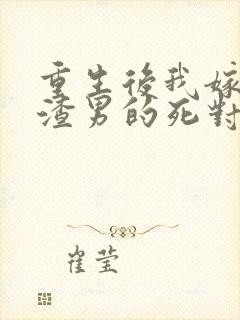 重生後我嫁
渣男的死對
崔莹